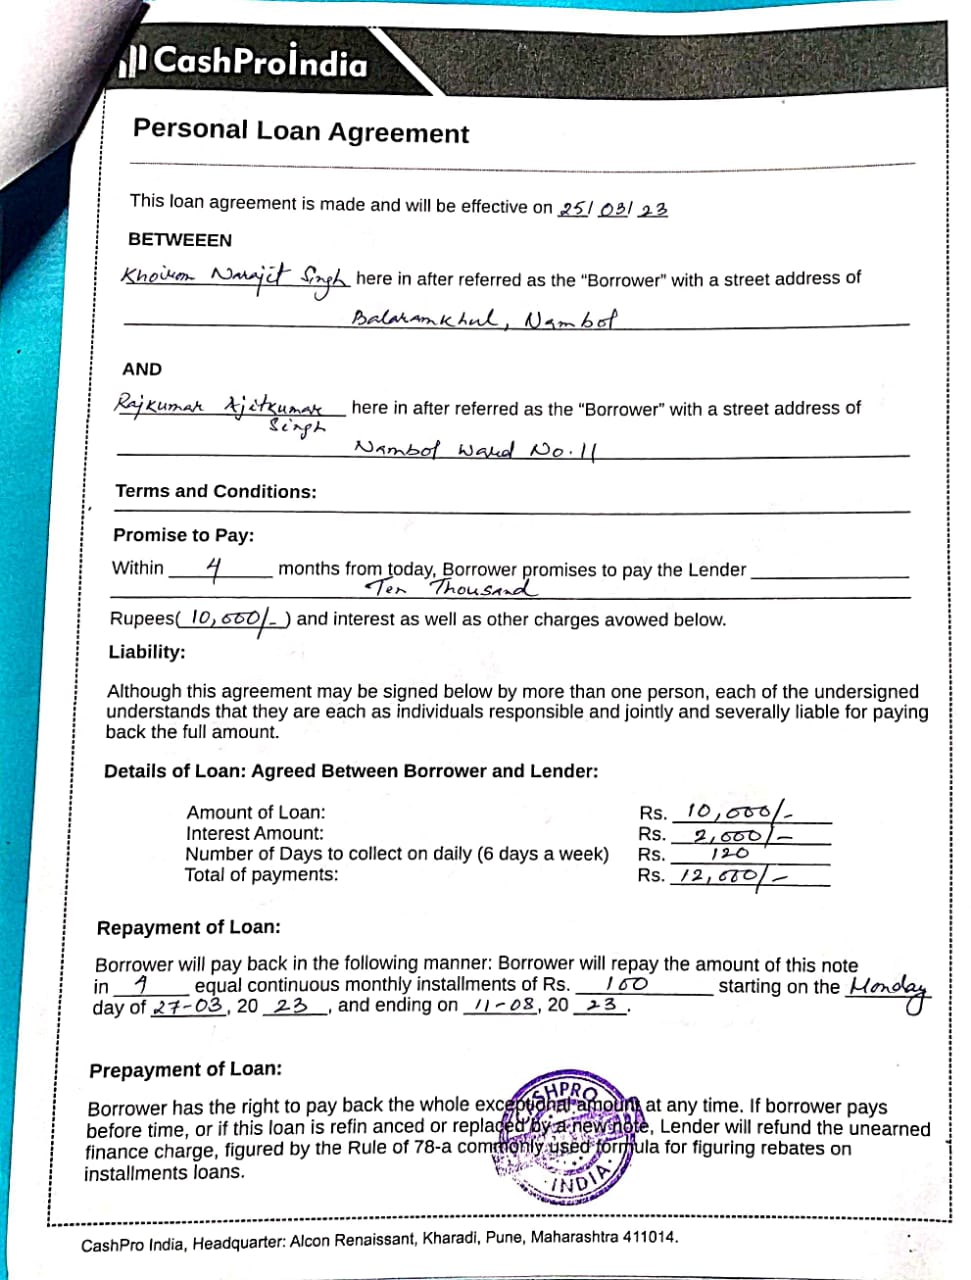 CashProIndia
Personal Loan Agreement
This loan agreement is made and will be effective on 25/03/23
BETWEEEN
Khoirom Narajit Singh here in after referred as the "Borrower" with a street address of
Balaramkhul, Nambol
AND
Rajkumar Ajitkumar here in after referred as the "Borrower" with a street address of
Singh
Nambol Ward No. 11
Terms and Conditions:
Promise to Pay:
Within 4 months from today, Borrower promises to pay the Lender
Ten Thousand
Rupees( 10,000/- ) and interest as well as other charges avowed below.
Liability:
Although this agreement may be signed below by more than one person, each of the undersigned
understands that they are each as individuals responsible and jointly and severally liable for paying
back the full amount.
Details of Loan: Agreed Between Borrower and Lender:
Amount of Loan: Rs. 10,000/-
Interest Amount: Rs. 2,000/-
Number of Days to collect on daily (6 days a week) Rs. 120
Total of payments: Rs. 12,000/-
Repayment of Loan:
Borrower will pay back in the following manner: Borrower will repay the amount of this note
in equal continuous monthly installments of Rs. 100 starting on the Monday
day of 27-03, 20 23, and ending on 11-08, 20 23.
Prepayment of Loan:
Borrower has the right to pay back the whole exceptional amount at any time. If borrower pays
before time, or if this loan is refin anced or replaced by a new note, Lender will refund the unearned
finance charge, figured by the Rule of 78-a commonly used formula for figuring rebates on
installments loans.
SHPRO
INDIA
CashPro India, Headquarter: Alcon Renaissant, Kharadi, Pune, Maharashtra 411014.